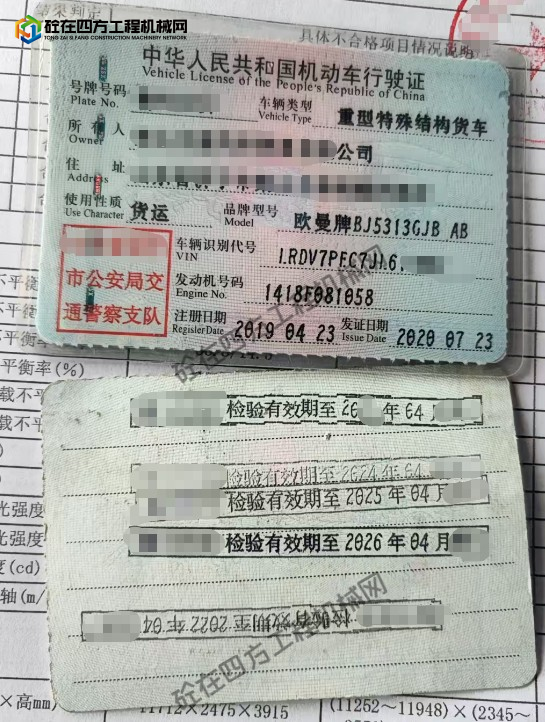 砼在四方工程机械网
TONG ZAI SI FANG CONSTRUCTION MACHINERY NETWORK
具体不合格项目情况说明
中华人民共和国机动车行驶证
Vehicle License of the People's Republic of China
号牌号码
Plate No.
车辆类型
Vehicle Type
重型特殊结构货车
所有人
Owner
公司
住址
Address
使用性质
Use Character
货运
品牌型号
Model
欧曼牌BJ5313GJB AB
市公安局交
通警察支队
车辆识别代号
VIN
LRDV7PEC7JL6
发动机号码
Engine No.
1418F081058
注册日期
Register Date
2019 04 23
发证日期
Issue Date
2020 07 23
不平衡
平衡率(%)
载不平
不平衡
检验有效期至20 年04月
检验有效期至2024年04
检验有效期至2025年04月
检验有效期至2026年04月
光强度
光强度
度(cd)
轴(m/
检验有效期至2022年04
砼在四方工程机械网
砼在四方工程机械网
×高mm)
11712×2475×3915
(11252~11948)×(2345~